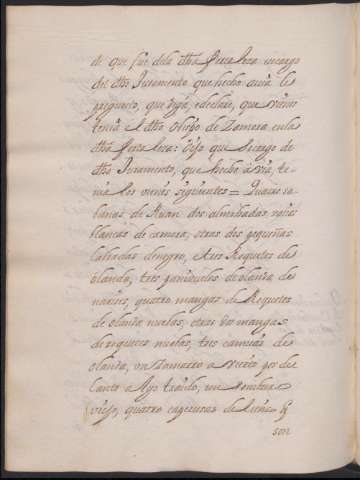 de que fue dela dha fortaleza encargo
del dho Juramento que hecho auia le
pregunto, que diga, e declare, que vienes
tenia el dho Obispo de Zamora en la
dha fortaleza: Dijo que so cargo de
dho Juramento, que hecho auia, te-
nia los vienes siguientes = Quatro sa-
banas de Ruan dos almohadas
blancas de camara, otras dos pequeñas
labradas de negro, tres Roquetes de
olanda, tres panizuelos de olanda de
narizes, quatro mangas de Roquetes
de olanda nuebos, otras dos mangas
de roquetes nuebas, tres camisas de
olanda, un Damasco
un sombrero
viejo, quatro de
son